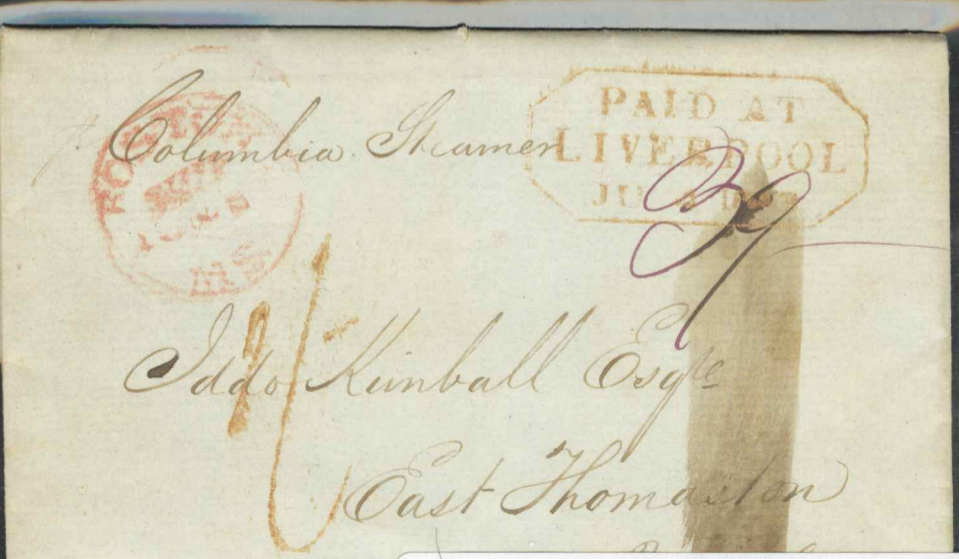 Columbia Steamer
PAID AT
LIVERPOOL
BOSTON
SHIP
MS
39
Iddo Kimball Esqre
East Thomaston